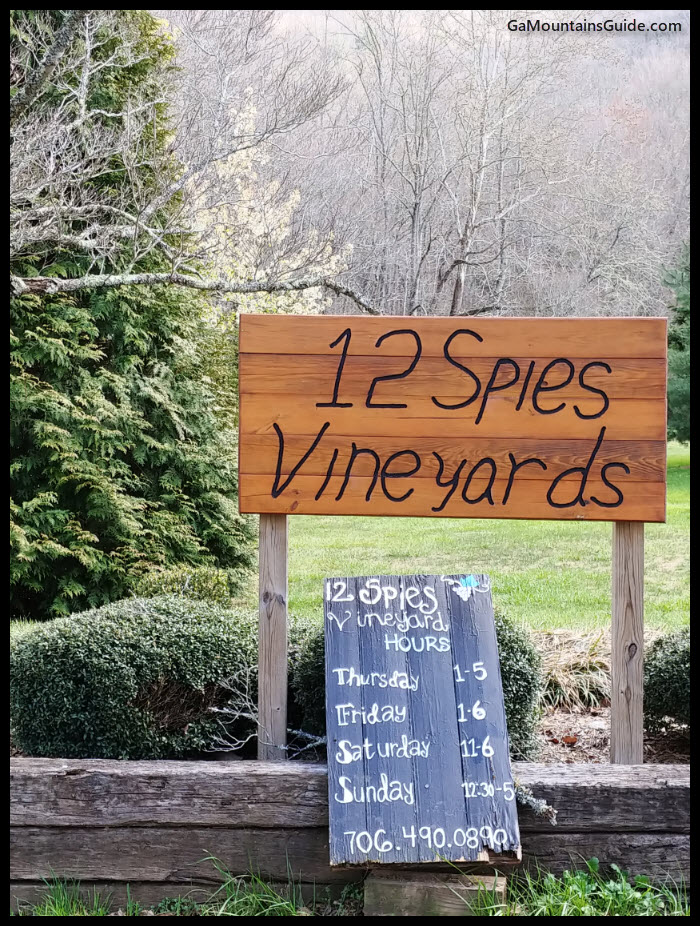 GaMountainsGuide.com
12 Spies
Vineyards
12 Spies
Vineyard
HOURS
Thursday 1-5
Friday 1-6
Saturday 11-6
Sunday 12:30-5
706.490.0890